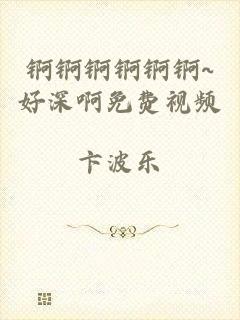 锕锕锕锕锕锕~
好深啊免费视频
卞波乐